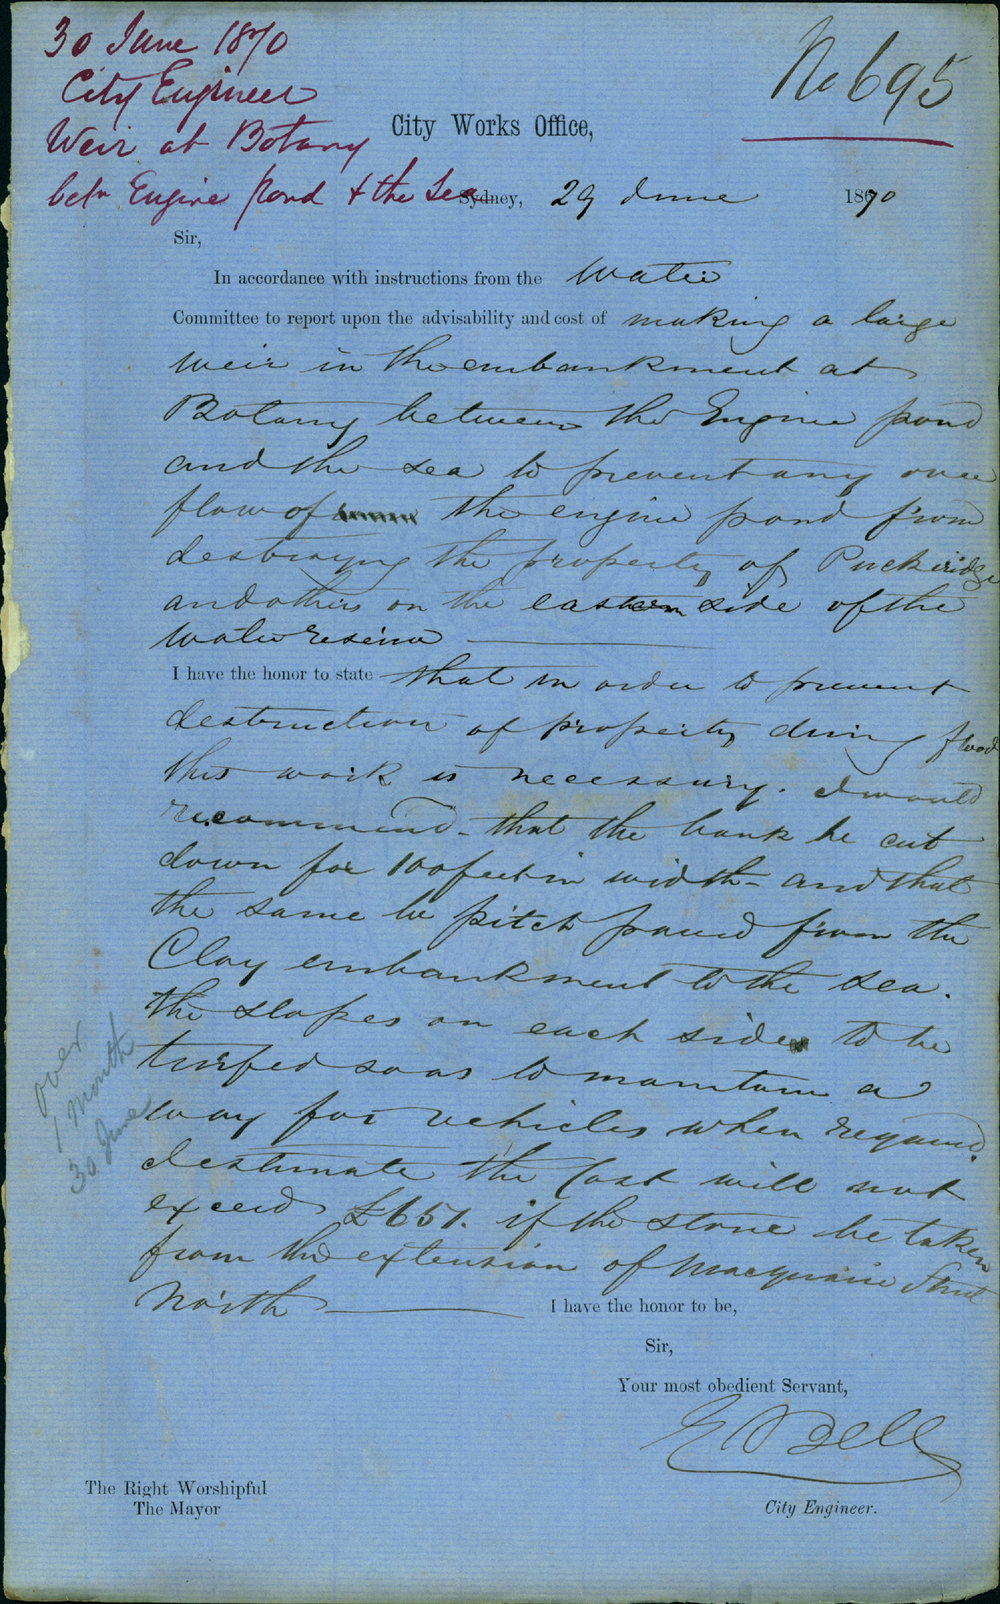 30 June 1870
City Engineer
Weir at Botany
betn Engine pond & the Sea
No 695
City Works Office,
Sydney, 29 June 1870
Sir,
In accordance with instructions from the Water
Committee to report upon the advisability and cost of making a large
weir in the embankment at
Botany between the Engine pond
and the sea to prevent any over
flow of the engine pond from
destroying the property of Puckeridge
and others on the eastern side of the
water reserve
I have the honor to state that in order to prevent
destruction of property during flood
this work is necessary. I would
recommend that the bank be cut
down for 100 feet in width - and that
the same be pitch paved from the
Clay embankment to the sea.
the slopes on each side to be
turfed so as to maintain a
way for vehicles when required.
I estimate the Cost will not
exceed £651. if the stone be taken
from the extension of Macquarie Street
North
I have the honor to be,
Sir,
Your most obedient Servant,
E Bell
The Right Worshipful
The Mayor
City Engineer.
over
1 Month
30 June